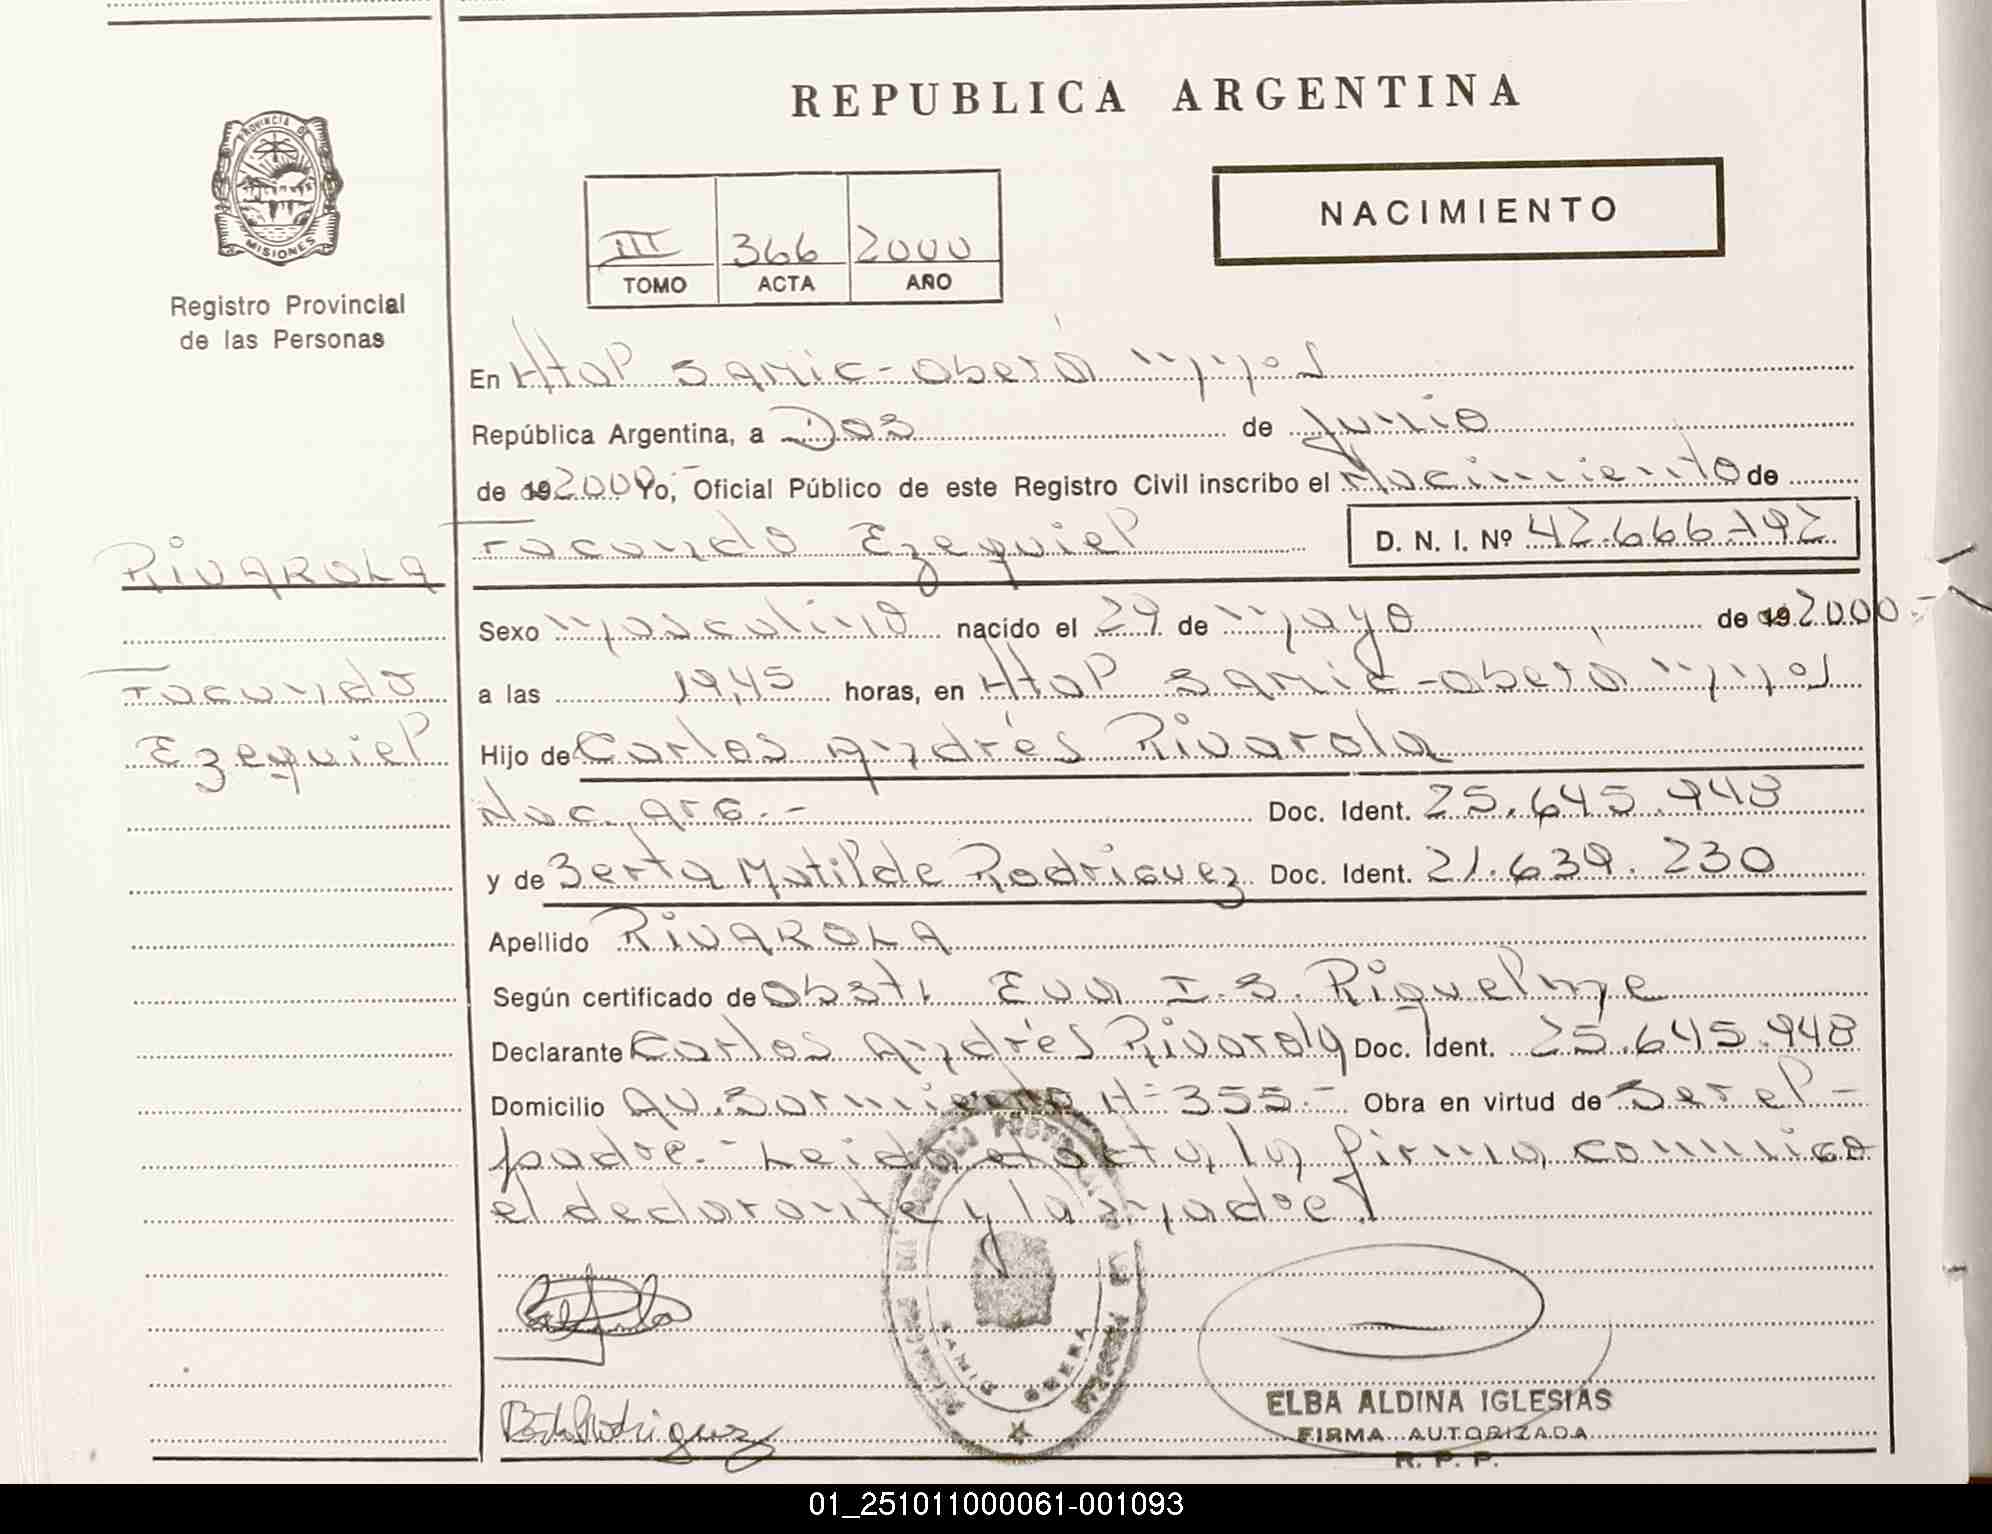 REPUBLICA ARGENTINA
PROVINCIA DE
MISIONES
Registro Provincial
de las Personas
III 366 2000
TOMO ACTA AÑO
NACIMIENTO
En Htal Samic-Oberá Mnes
República Argentina, a Dos de Junio
de 19 2000.- Yo, Oficial Público de este Registro Civil inscribo el Nacimiento de
Facundo Ezequiel D. N. I. Nº 42.666.792
RIVAROLA
Facundo
Ezequiel
Sexo Masculino nacido el 29 de Mayo de 19 2000.-
a las 19,45 horas, en Htal Samic-Oberá Mnes
Hijo de Carlos Andrés Rivarola
Nac. arg.- Doc. Ident. 25.645.948
y de Berta Matilde Rodriguez Doc. Ident. 21.639.230
Apellido RIVAROLA
Según certificado de Obst. Eva I.S. Riquelme
Declarante Carlos Andrés Rivarola Doc. Ident. 25.645.948
Domicilio Av. Sarmiento Nº 355.- Obra en virtud de Ser el-
padre.- Leida el acta, la firma, conmigo
el declarante y la madre
SAMIC OBERA
Rodriguez
ELBA ALDINA IGLESIAS
FIRMA AUTORIZADA
R. P. P.
01_251011000061-001093